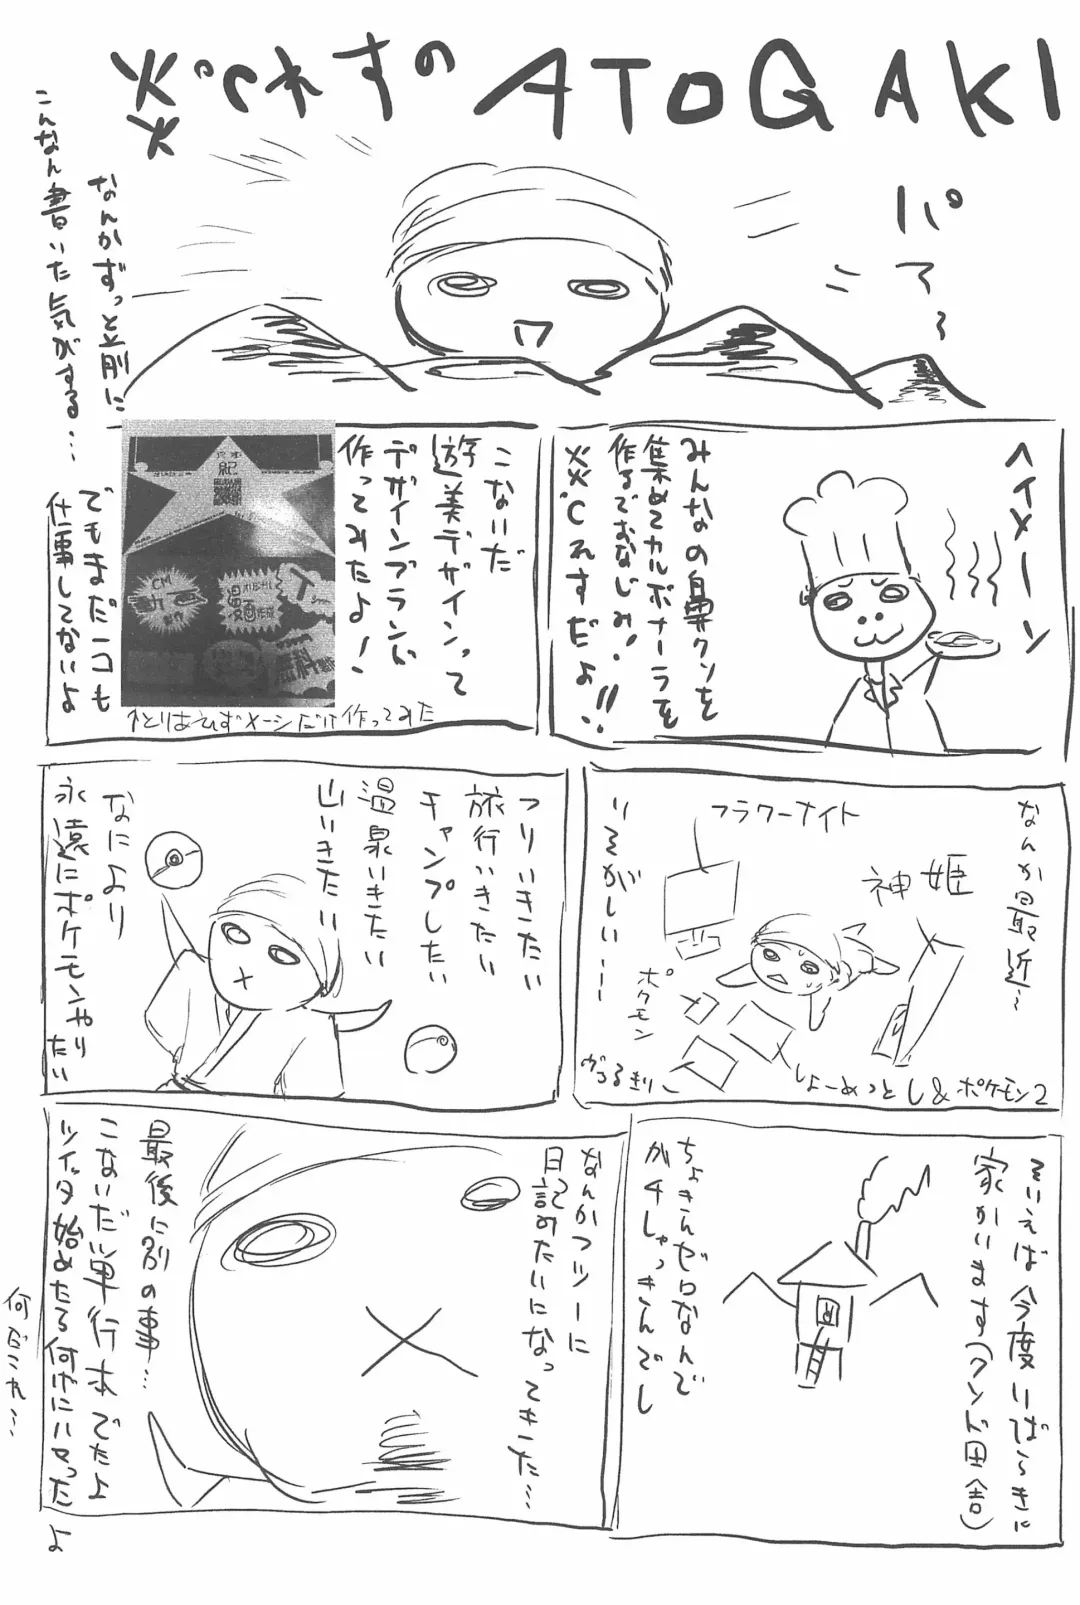 炎゜Cれすの ATOGAKI
パァ〜
なんかずっと前に
こんなん書いた気がする…
ヘイメーン
みんなの鼻クソを
集めてカルボナーラを
作るでおなじみ!
炎℃れすだよ!!
こないだ
遊美デザインって
デザインブランド
作ってみたよ!
↑とりあえずメーシだけ作ってみた
でもまだ一コも
仕事してないよ
なんか最近〜
フラワーナイト
神姫
ポケモン
しょーめっとし&ポケモン2
いそがしいーー
つりいきたい
旅行いきたい
キャンプしたい
温泉いきたい
山いきたい
なにより
永遠にポケモンやりたい
そいえば今度いばらきに
家かいます(クンド田舎)
ちょきんゼロなんで
ガチしゃっきんでし
なんかフツーに
日記みたいになってきた…
最後に別の事…
こないだ単行本でたよ
ツイッタ始めたら何げにハマったよ
何だこれ…